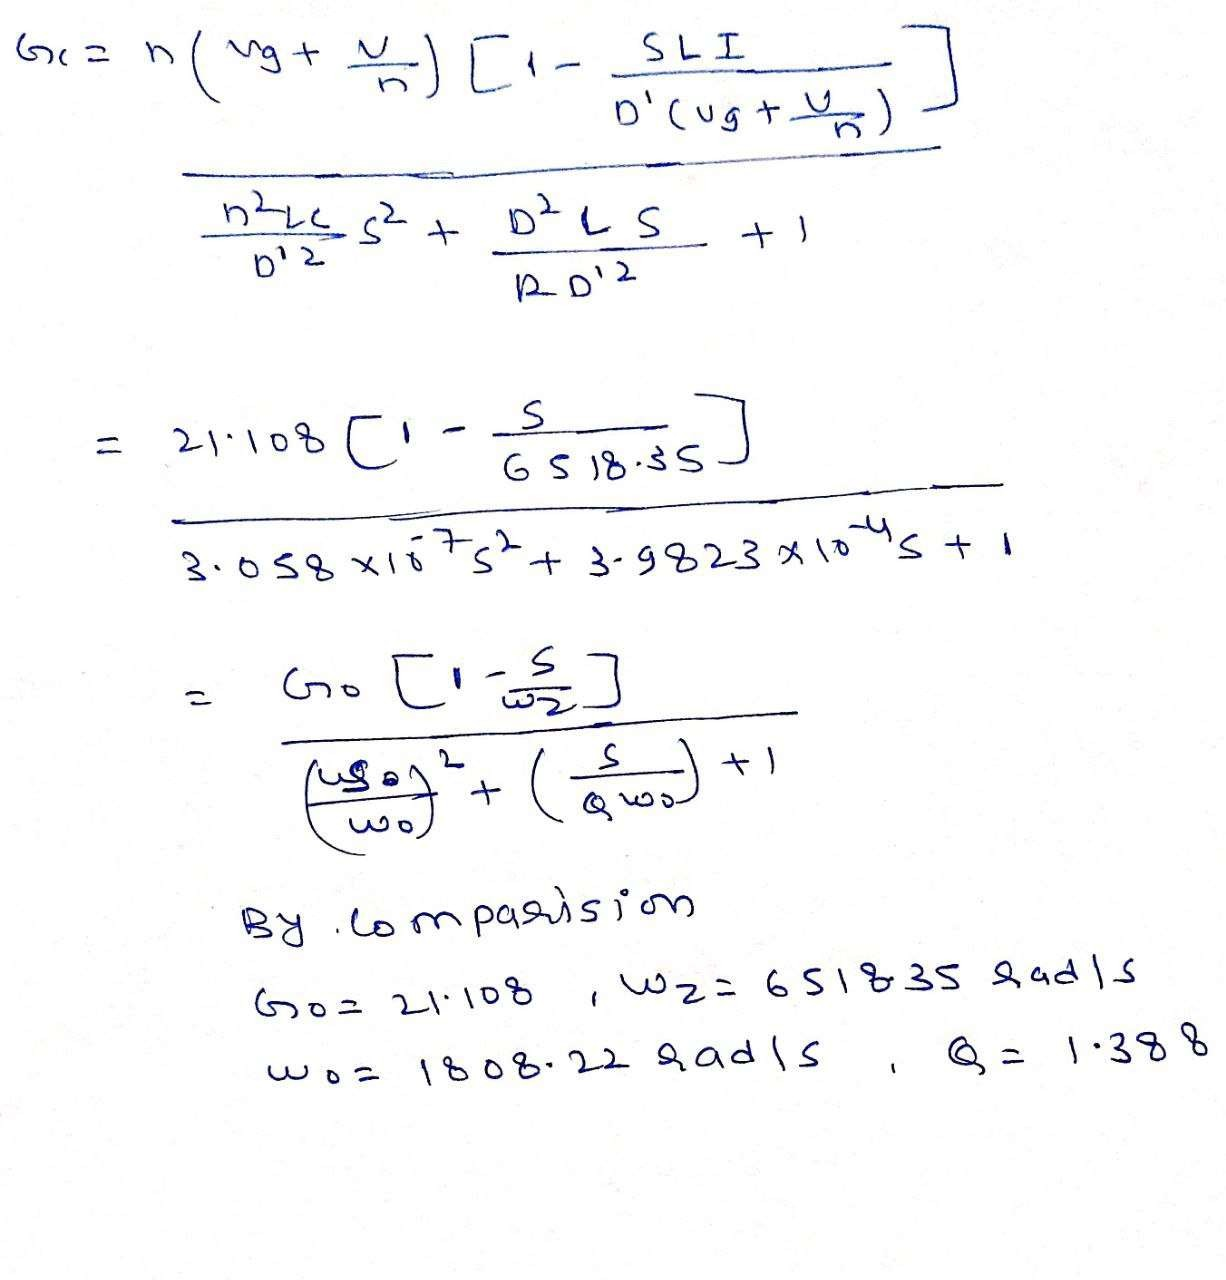 Gc = n (vg + v/n) [1 - SLI / D'(vg + v/n)]
n²LC/D'² s² + D²LS / RD'² + 1
= 21.108 [1 - S / 6518.35]
3.058 x10⁻⁷ s² + 3.9823 x 10⁻⁴ s + 1
= Go [1 - S/wz]
( /wo)² + (S / Qwo) + 1
By comparision
Go = 21.108 , wz = 6518.35 rad/s
wo = 1808.22 rad/s , Q = 1.388